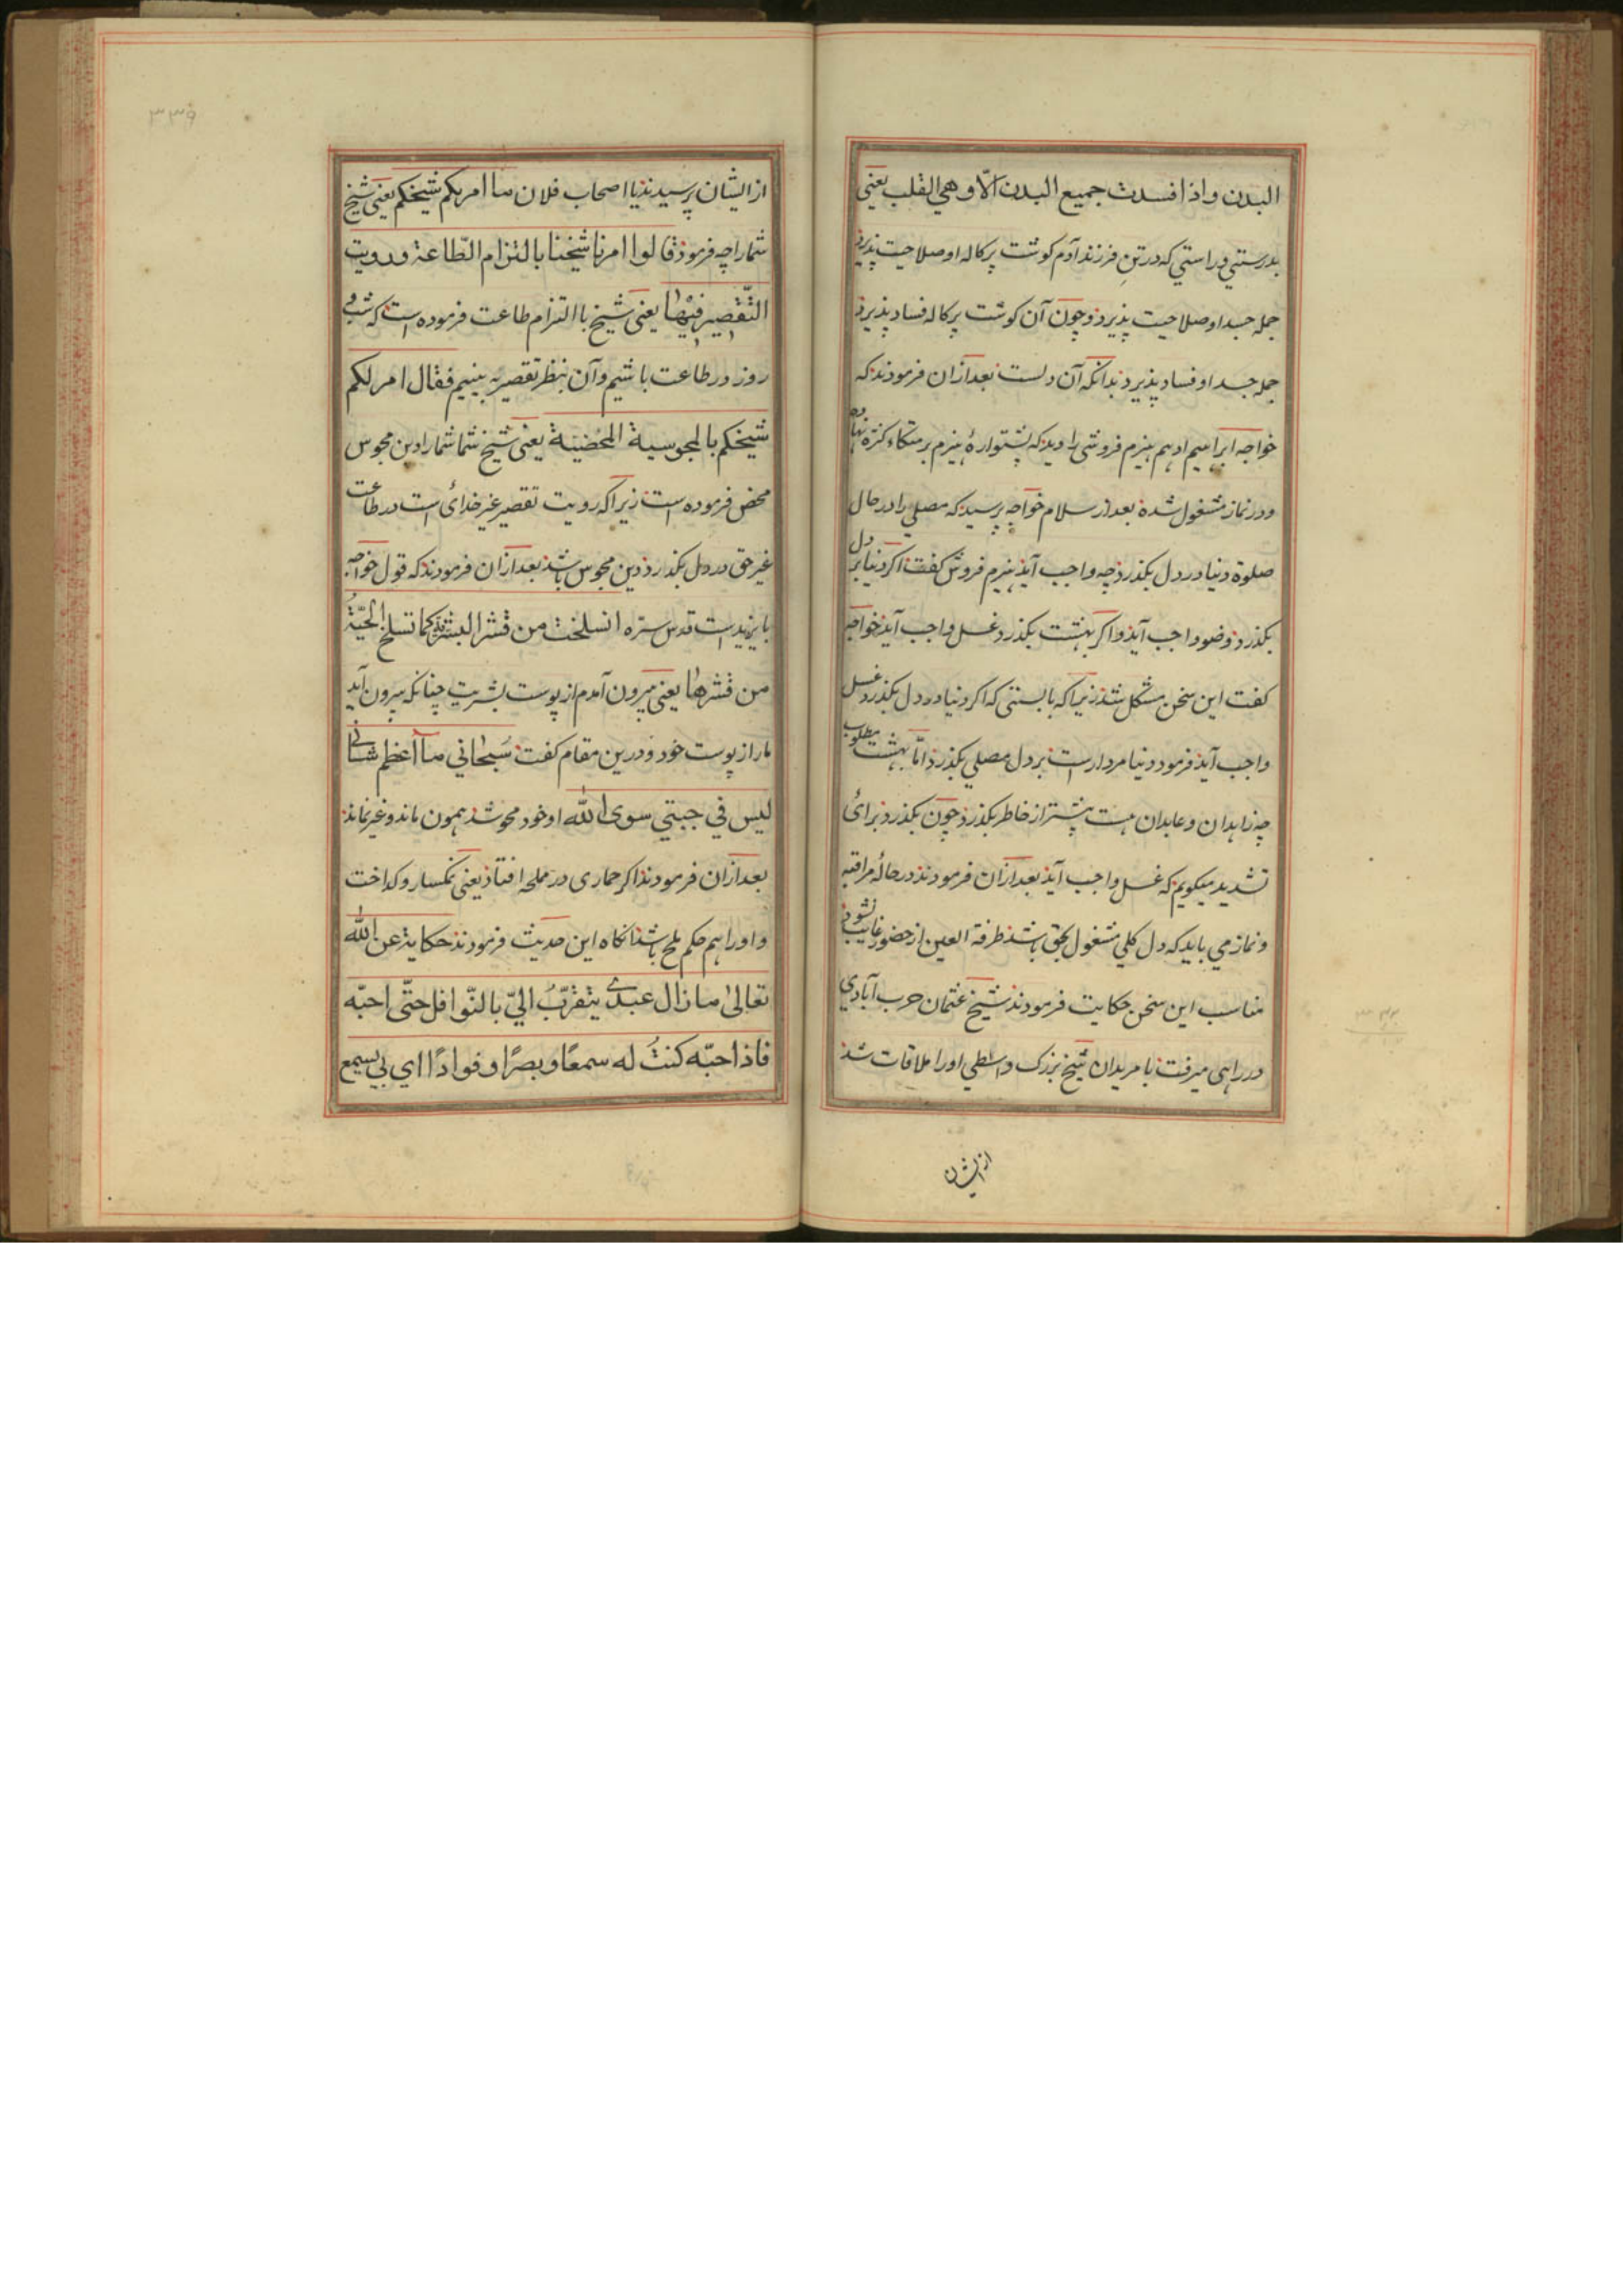 البدن واذا فسدت جميع البدن الّا وهي القلب يعنى
بدرستي وراستي كه در تنِ فرزند آدم كوشت پركاله او صلاحيت پذيرد
جمله جسد او صلاحيت پذيرد و چون آن كوشت پركاله فساد پذيرد
جمله جسد او فساد پذيرد بدانكه آن دلست بعد ازان فرمودند كه
خواجه ابراهيم ادهم هيزم فروشى را ديد كه پشتوارهٔ هيزم بر متكاء كتره نهاده
ودر نماز مشغول شده بعد از سلام خواجه پرسيد كه مصلي را در حال
صلوة دنيا در دل بكذرد چه واجب آيد هيزم فروش كفت اكر دنيا بر دل
بكذرد وضو واجب آيد واكر بهشت بكذرد غسل واجب آيد خواجه
كفت اين سخن مشكل شد زيرا كه بايستى كه اكر دنيا در دل بكذرد غسل
واجب آيد فرمود دنيا مردارست بر دل مصلي بكذرد امّا بهشت مطلوب
چه زاهدان وعابدان هست پيشتر از خاطر بكذرد چون بكذرد براى
تشديد ميكويم كه غسل واجب آيد بعد ازان فرمودند در حالهٔ مراقبه
ونماز مي بايد كه دل كلي مشغول بحق باشد طرفة العين از حضور غايب نشود
مناسب اين سخن حكايت فرمودند شيخ عثمان حرب آبادي
در راهى ميرفت با مريدان شيخ بزرك واسطي اورا ملاقات شد
از ايشان
٣٣٩
از ايشان پرسيدند يا اصحاب فلان ما امر بكم شيخكم يعنى شيخ
شما را چه فرمود قالوا امرنا شيخنا بالتزام الطّاعة ورويت
التّقصير فيها يعنى شيخ با التزام طاعت فرموده است كه شب و
روز در طاعت باشيم وآن بنظر تقصير به بينيم فقال امر لكم
شيخكم بالمجوسية المحضية يعنى شيخ شما شمارا دين مجوس
محض فرموده است زيرا كه رويت تقصير غير خدائ است در طاعت
غير حق در دل بكذارد دين مجوس باشد بعد ازان فرمودند كه قول خواجه
بايزيد است قدس سرّه انسلخت من قشر البشرية كما تسلخ الحيّةُ
من قشرها يعنى بيرون آمدم از پوست بشريت چنانكه بيرون آيد
مار از پوست خود ودرين مقام كفت سُبحاني ما اعظم شانى
ليس في جبتي سوى الله او خود محو شد همون ماند وغير نماند
بعد ازان فرمودند اكر حمارى در مملحه افتاد يعنى نمكسار وكداخت
واورا هم حكم ملح باشد انكاه اين حديث فرمودند حكاية عن الله
تعالىٰ ما زال عبدي يتقرّبُ اليّ بالنّوافل حتّى احبّه
فاذا احبّه كنتُ له سمعًا وبصرًا وفوادًا اي بى يسمع